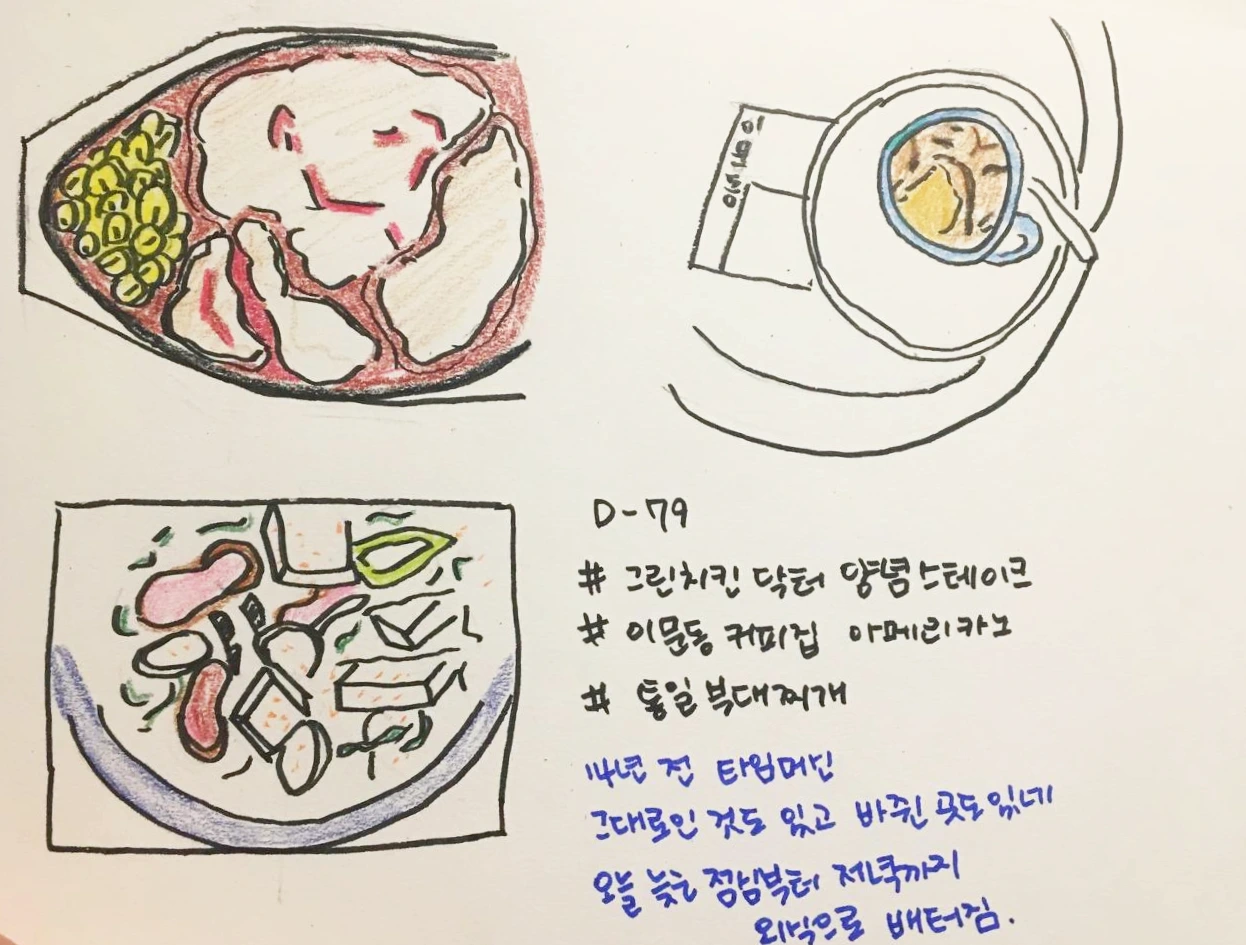 이문동
D-79
# 그린치킨 닥터 양념스테이크
# 이문동 커피집 아메리카노
# 통일부대찌개
14년 전 타임머신
그대로인 것도 있고 바뀐 곳도 있네
오늘 늦은 점심부터 저녁까지
외식으로 배터짐.